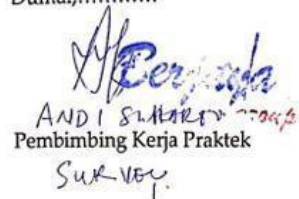 Dumai,..............
ANDI SUHARTO
Pembimbing Kerja Praktek
SURVEY.